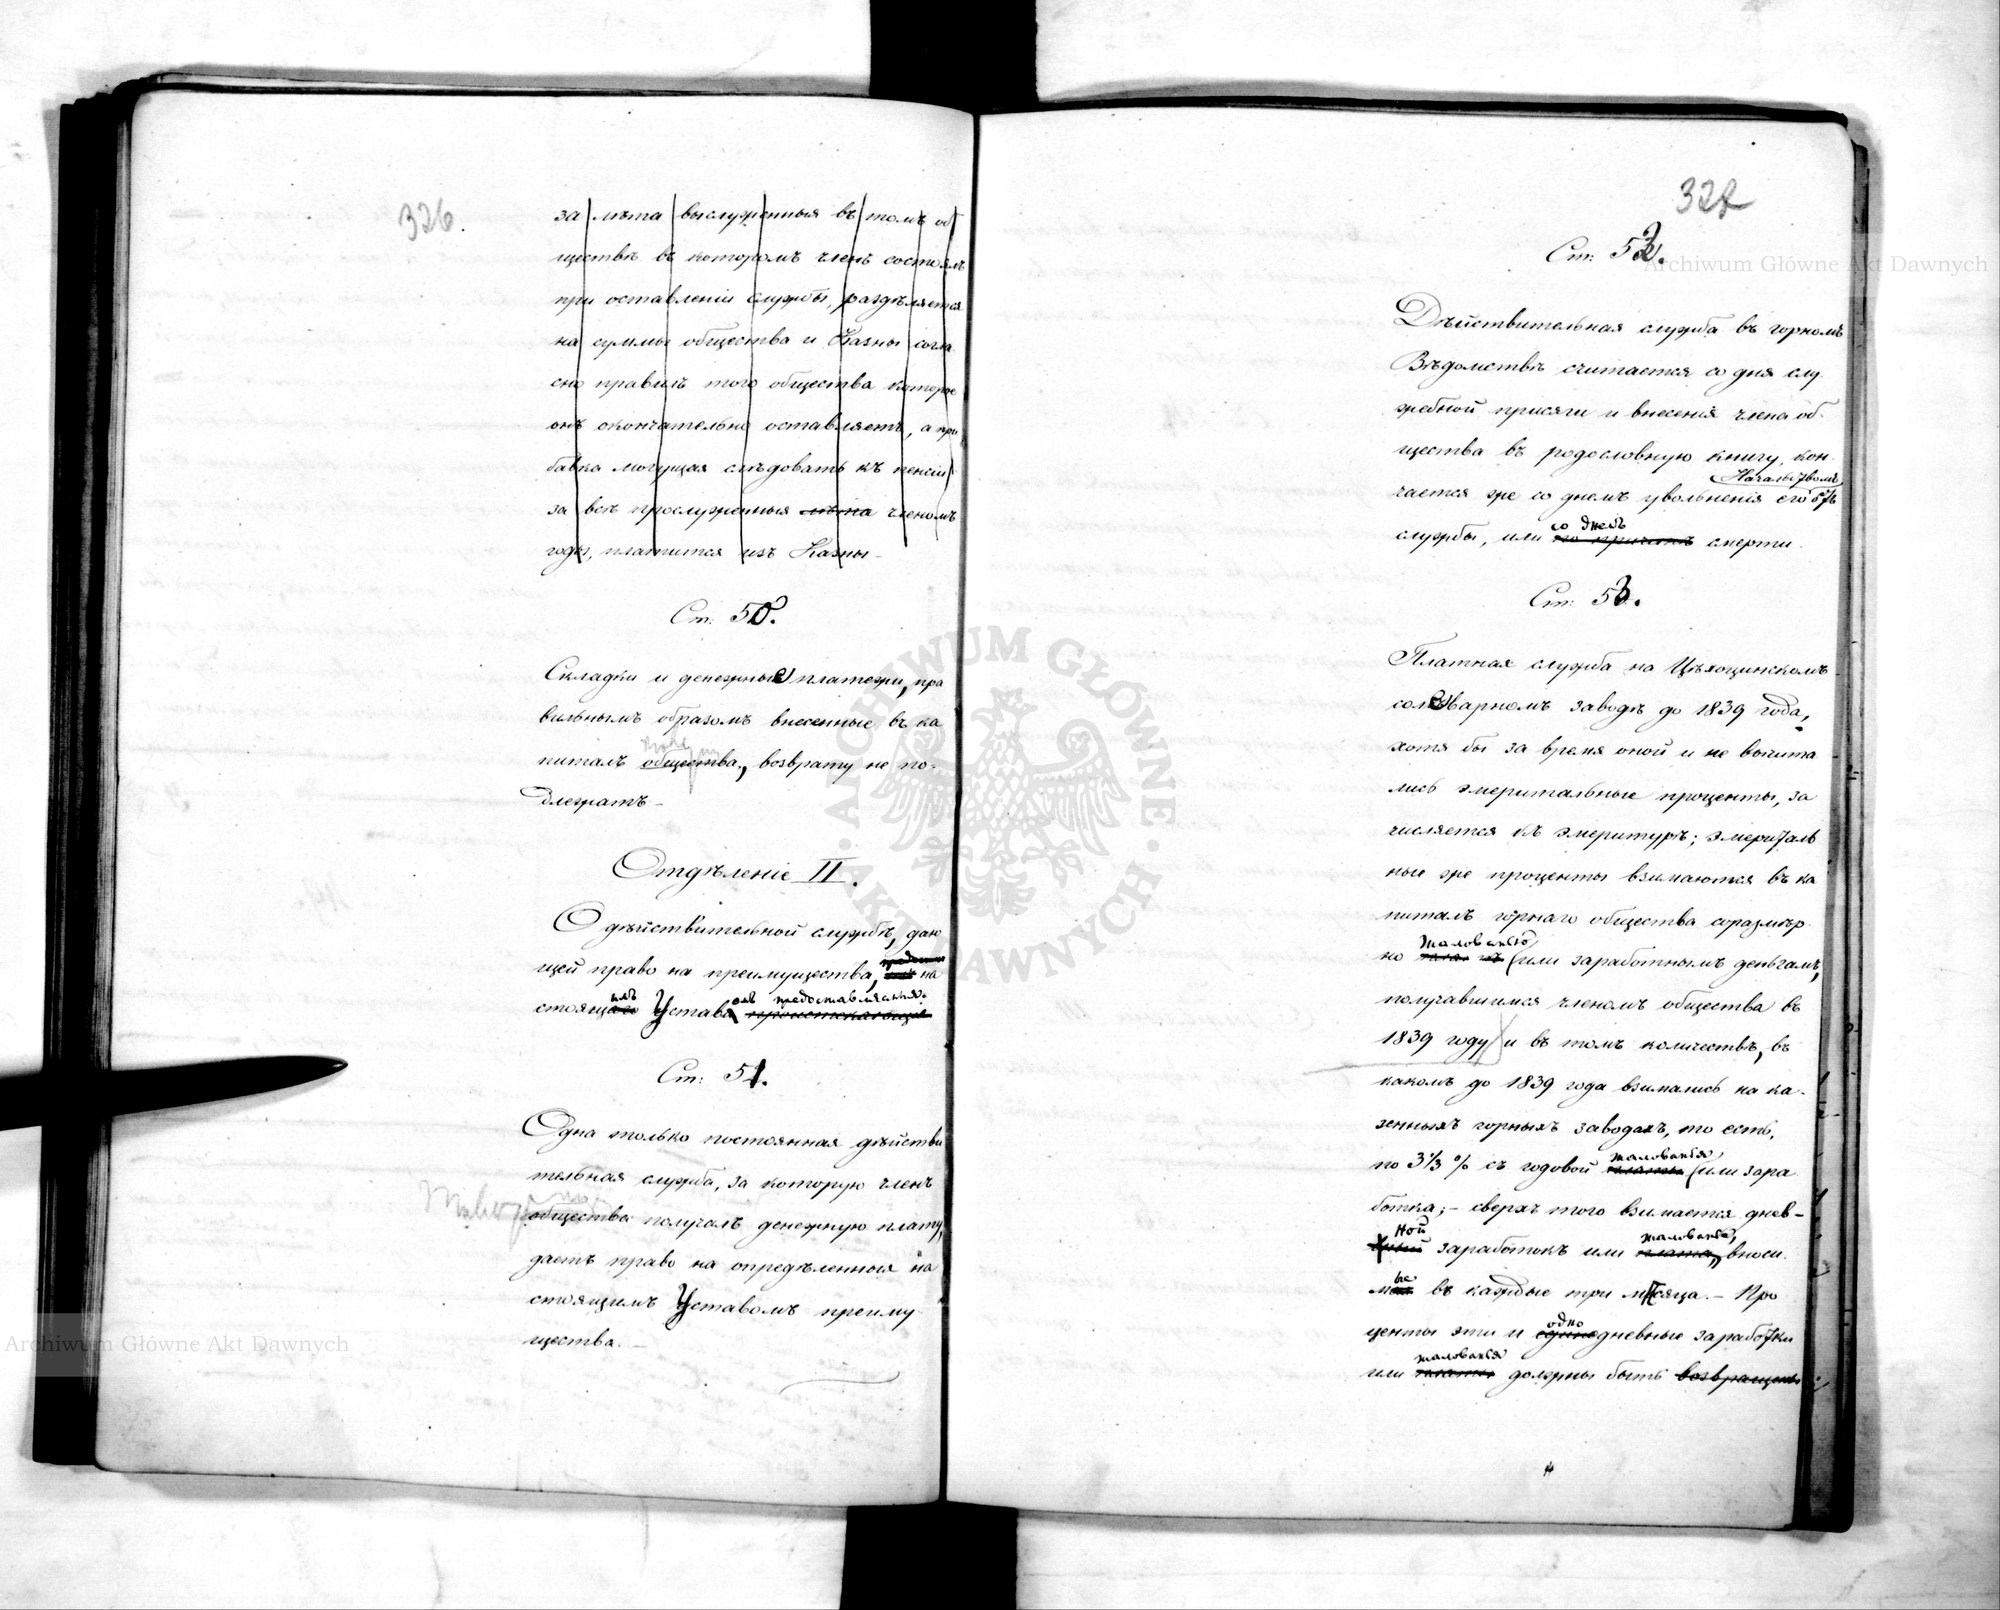 326.
за лѣта выслуженныя въ томъ об
ществѣ въ которомъ членъ состоялъ
при оставленіи службы, раздѣляется
на суммы общества и Казны согла
сно правилъ того общества которое
онъ окончательно оставляетъ, а при
бавка могущая слѣдовать къ пенсіи
за всѣ прослуженныя лѣта членомъ
годы, платится изъ Казны -
Ст: 50.
Складки и денежные платежи, пра
вильнымъ образомъ внесенные въ ка
питалъ общества, возврату не по-
длежатъ -
Отдѣленіе II.
О дѣйствительной службѣ, даю
щей право на преимущества, на
имъ омъ предоставленныя.
стояща Устав
Ст: 51.
Одна только постоянная дѣйстви
тельная служба, за которую членъ
общества получалъ денежную плату,
даетъ право на опредѣленныя на
стоящимъ Уставомъ преиму
щества. -
327
Ст: 52.
Дѣйствительная служба въ горномъ
Вѣдомствѣ считается со дня слу
жебной присяги и внесенія члена об-
щества въ родословную книгу, кон-
Начальствомъ
чается же со днемъ увольненія его отъ
со дней
службы, или по причинѣ смерти.
Ст: 53.
Платная служба на Цѣхоцинскомъ
солеварномъ заводѣ до 1839 года,
хотя бы за время оной и не вычита
лись эмеритальные проценты, за
числяется къ эмеритурѣ; эмериталь
ные же проценты взимаются въ ка
питалъ горнаго общества соразмѣр
жалованью
но (или заработнымъ деньгамъ,
получавшимся членомъ общества въ
1839 году) и въ томъ количествѣ, въ
какомъ до 1839 года взимались на ка-
зенныхъ горныхъ заводахъ, то есть,
жалованья
по 3⅓ % съ годовой платы (или зара
ботка; - сверхъ того взимается днев-
ной жалованье,
заработокъ или плата, вноси
ые
м въ каждые три мѣсяца. - Про
одно
центы эти и едино дневные заработки
жалованья
или платы должны быть возвращены
Archiwum Główne Akt Dawnych
Archiwum Główne Akt Dawnych
ARCHIWUM GŁÓWNE · AKT DAWNYCH ·